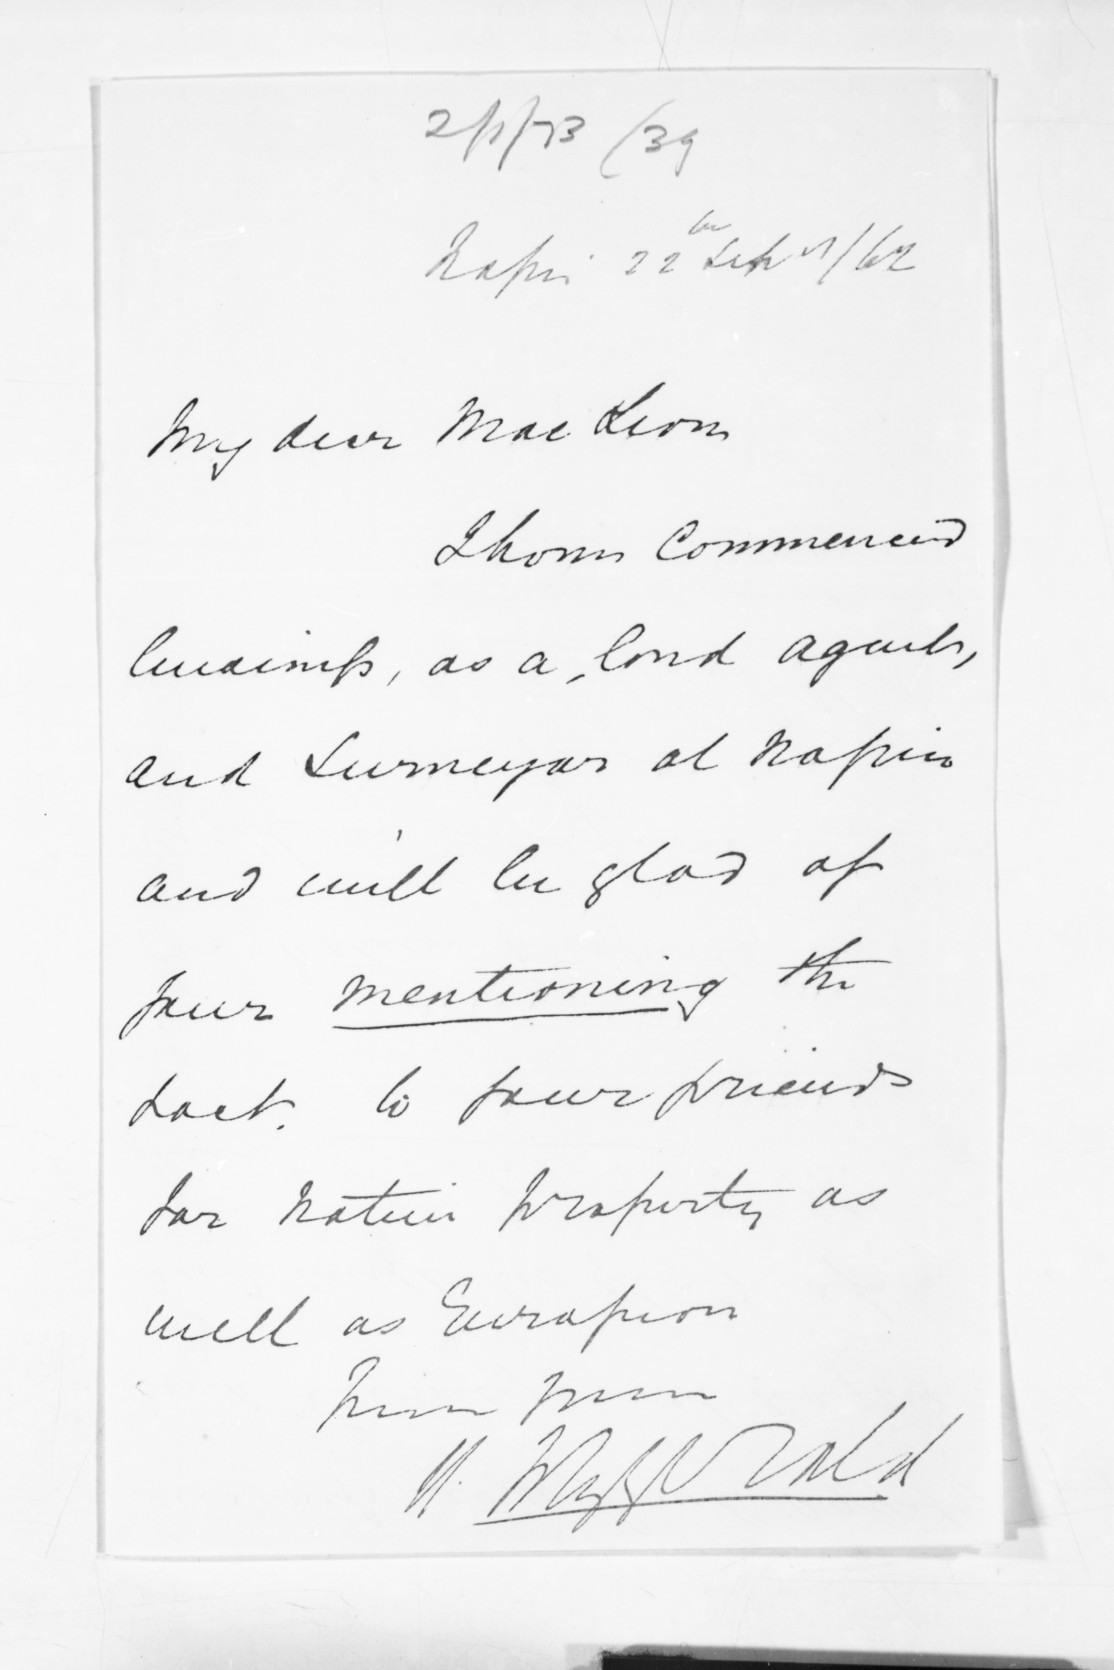 2/1/73 /39
Napier 22nd Sept/62
My dear Mac Lean
I have Commenced
business, as a, land agent,
and Surveyor at Napier
and will be glad of
your mentioning the
fact. to your friends
for Native property as
well as European
Yours
H. FitzGerald